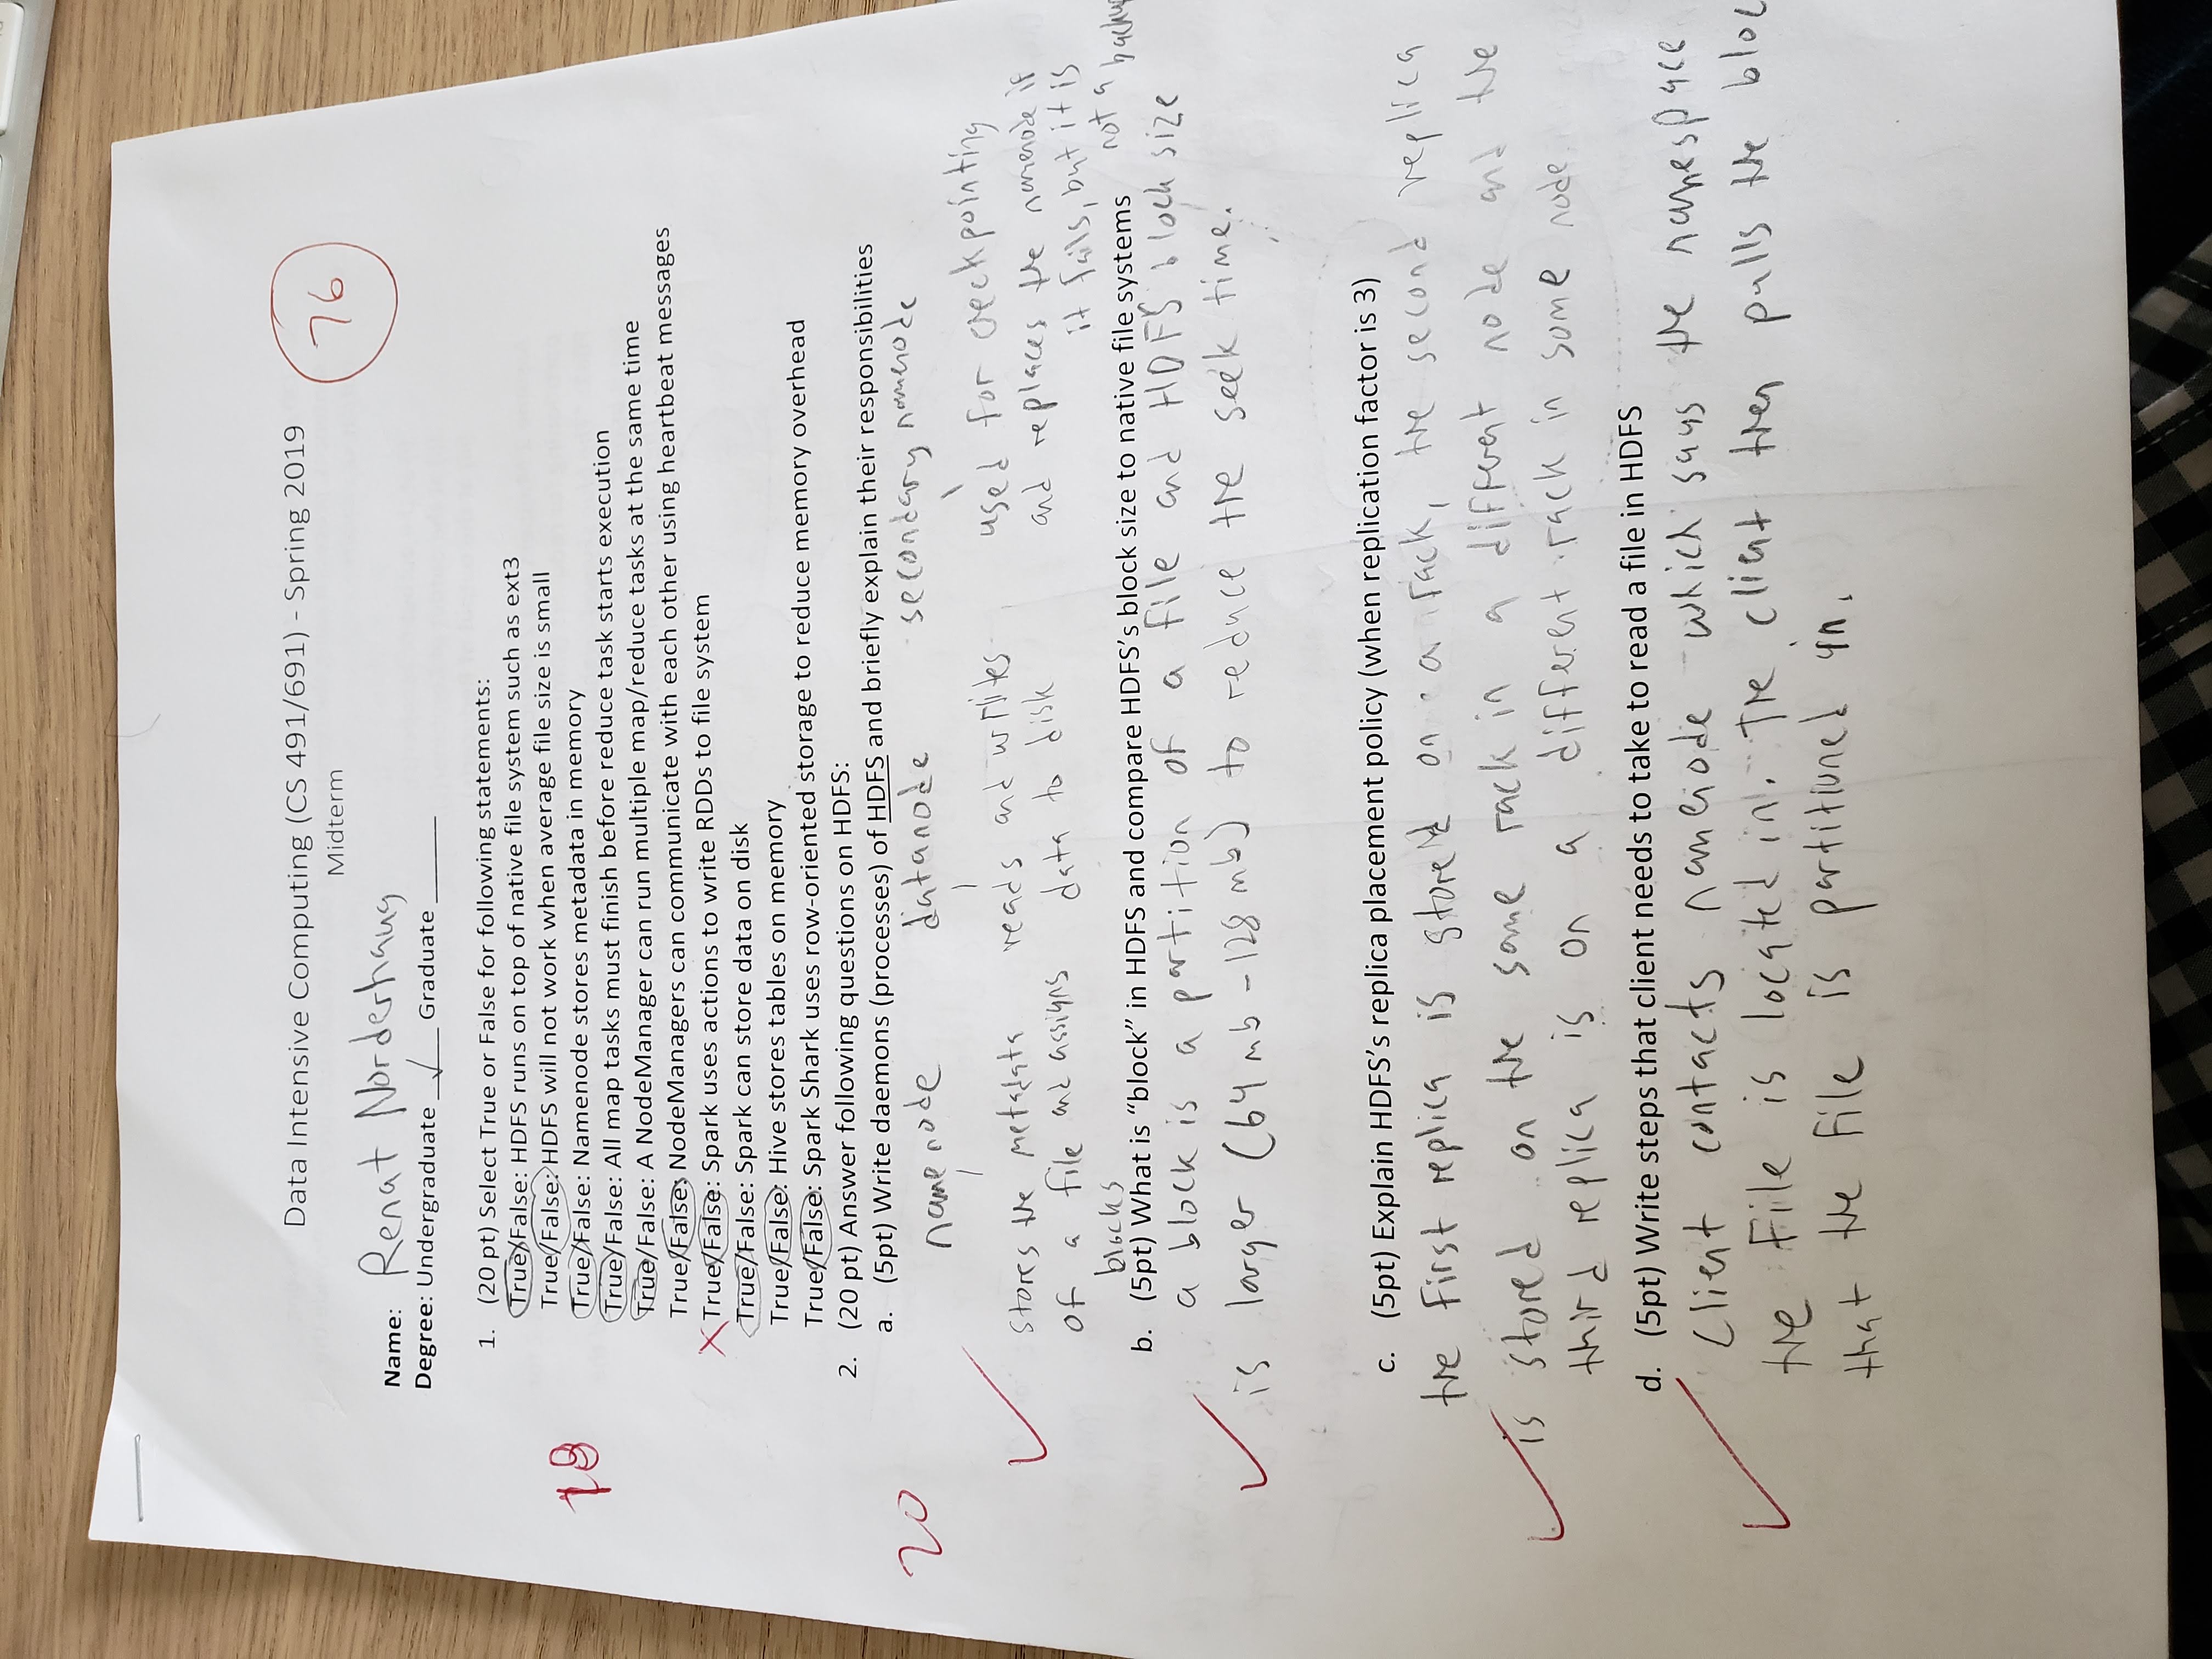 Data Intensive Computing (CS 491/691) - Spring 2019
Midterm
76
Name: Renat Norderhaug
Degree: Undergraduate ✓ Graduate ______
1. (20 pt) Select True or False for following statements:
True/False: HDFS runs on top of native file system such as ext3
True/False: HDFS will not work when average file size is small
18
True/False: Namenode stores metadata in memory
True/False: All map tasks must finish before reduce task starts execution
True/False: A NodeManager can run multiple map/reduce tasks at the same time
True/False: NodeManagers can communicate with each other using heartbeat messages
X True/False: Spark uses actions to write RDDs to file system
True/False: Spark can store data on disk
True/False: Hive stores tables on memory
True/False: Spark Shark uses row-oriented storage to reduce memory overhead
2. (20 pt) Answer following questions on HDFS:
a. (5pt) Write daemons (processes) of HDFS and briefly explain their responsibilities
20
namenode datanode secondary namenode
stores the metadata reads and writes used for checkpointing
of a file and assigns data to disk and replaces the namenode if
blocks it fails, but it is
not a backup
b. (5pt) What is “block” in HDFS and compare HDFS’s block size to native file systems
a block is a partition of a file and HDFS block size
is larger (64 mb - 128 mb) to reduce the seek time.
c. (5pt) Explain HDFS’s replica placement policy (when replication factor is 3)
the first replica is stored on a rack, the second replica
is stored on the same rack in a different node and the
third replica is on a different rack in some node
d. (5pt) Write steps that client needs to take to read a file in HDFS
Client contacts namenode which says the namespace
the file is located in. The client then pulls the bloc
that the file is partitioned in.